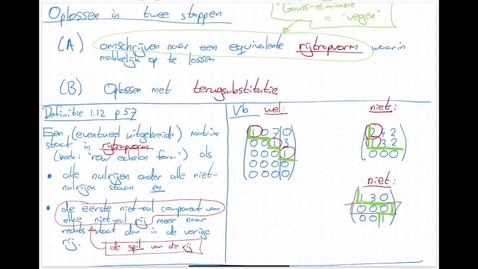 Oplossen in twee stappen
"Gauss-eliminatie
= "vegen"
(A) omschrijven naar een equivalente rijtrapvorm waarin
makkelijk op te lossen
(B) Oplossen met terugsubstitutie
Definitie 1.12 p 57
Een (eventueel uitgebreide) matrix
staat in rijtrapvorm
(Eng: "row echelon form") als
• alle nulrijen onder alle niet-
nulrijen staan en
• de eerste niet-nul component van
elke niet-nul rij meer naar
rechts staat dan in de vorige
rij.
de spil van die rij
Vb wel: niet:
1 0 7 0
0 0 1 3
0 0 0 1
0 0 0 0
0 0 0 0
2 4 2
1 3 2
0 0 0
niet:
1 3 0
0 0 0
0 0 1